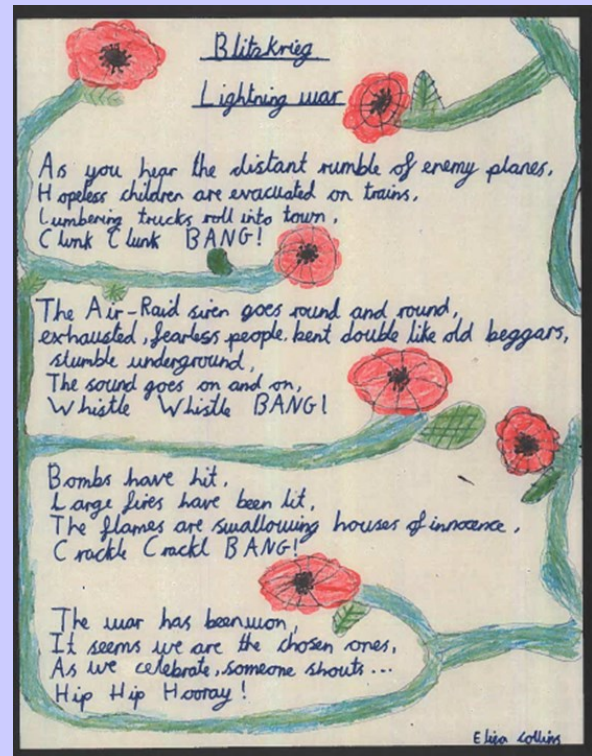 Blitzkrieg
Lightning war
As you hear the distant rumble of enemy planes,
Hopeless children are evacuated on trains,
Lumbering trucks roll into town,
Clunk Clunk BANG!
The Air-Raid siren goes round and round,
exhausted, fearless people. bent double like old beggars,
stumble underground,
The sound goes on and on,
Whistle Whistle BANG!
Bombs have hit,
Large fires have been lit,
The flames are swallowing houses of innocence,
Crackle Crackl BANG!
The war has been won,
It seems we are the chosen ones,
As we celebrate, someone shouts...
Hip Hip Hooray!
Eliza Collins